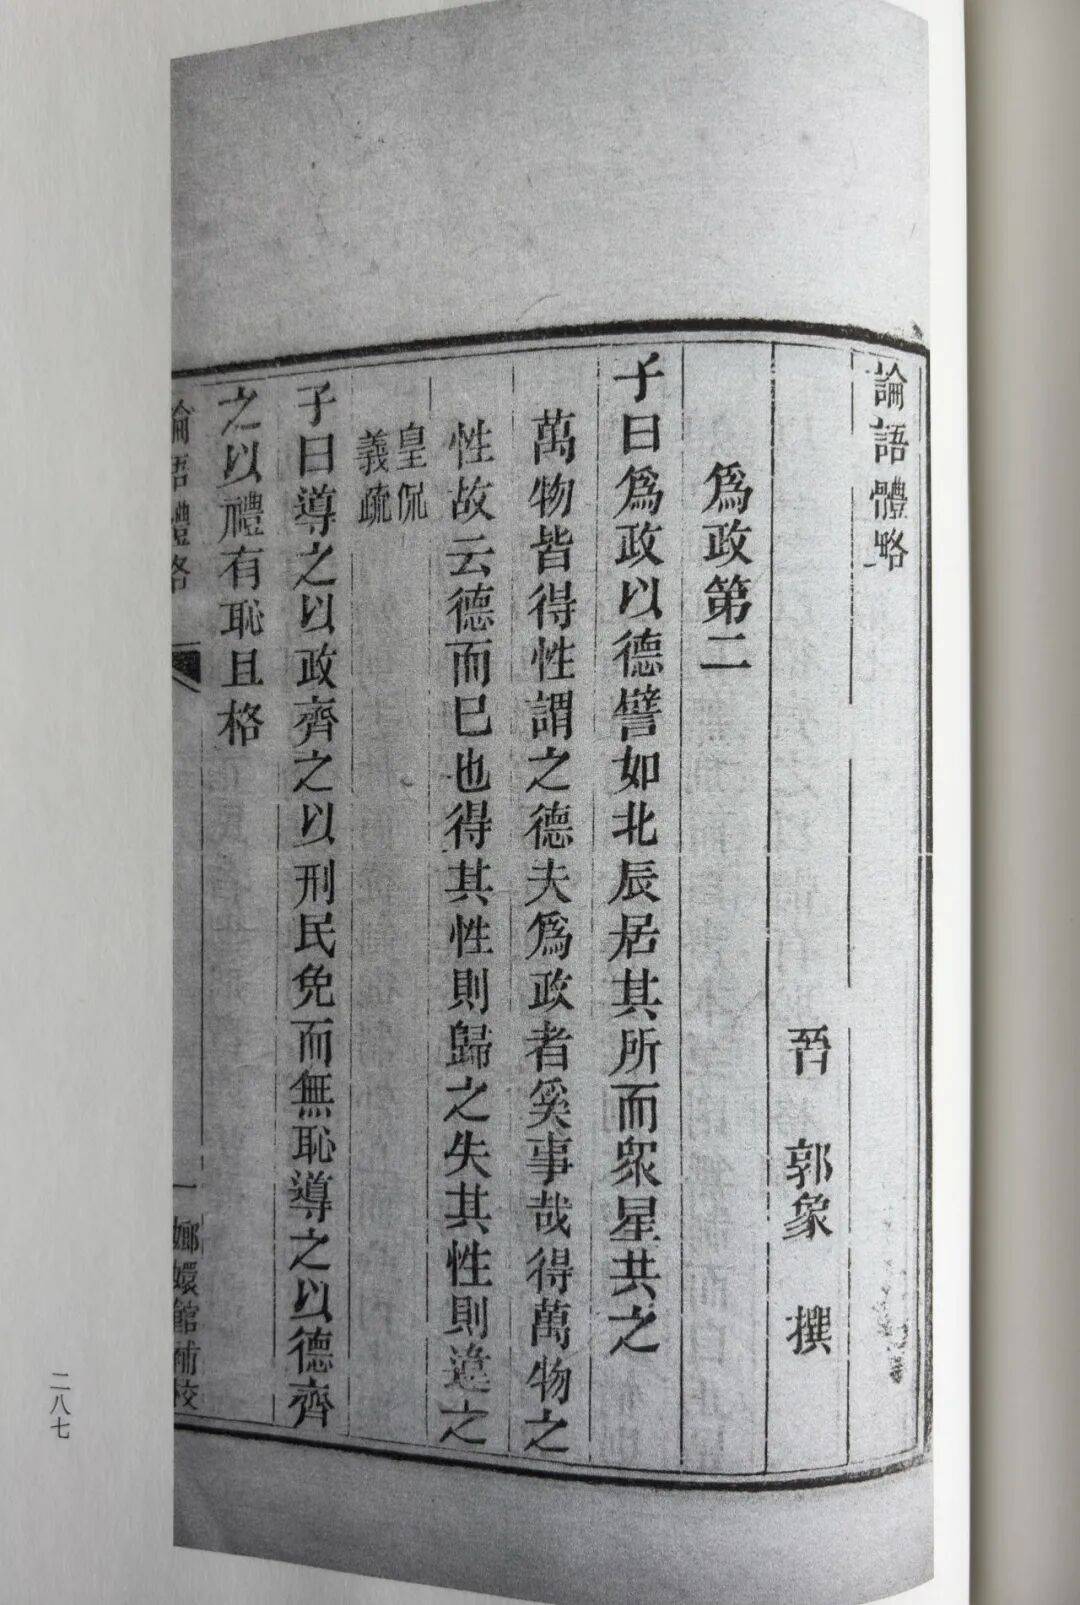 論語體略
晉 郭象 撰
爲政第二
子曰爲政以德譬如北辰居其所而衆星共之
萬物皆得性謂之德夫爲政者奚事哉得萬物之
性故云德而已也得其性則歸之失其性則違之
皇侃
義疏
子曰導之以政齊之以刑民免而無恥導之以德齊
之以禮有恥且格
論語體略 一 嫏嬛館補校
二八七